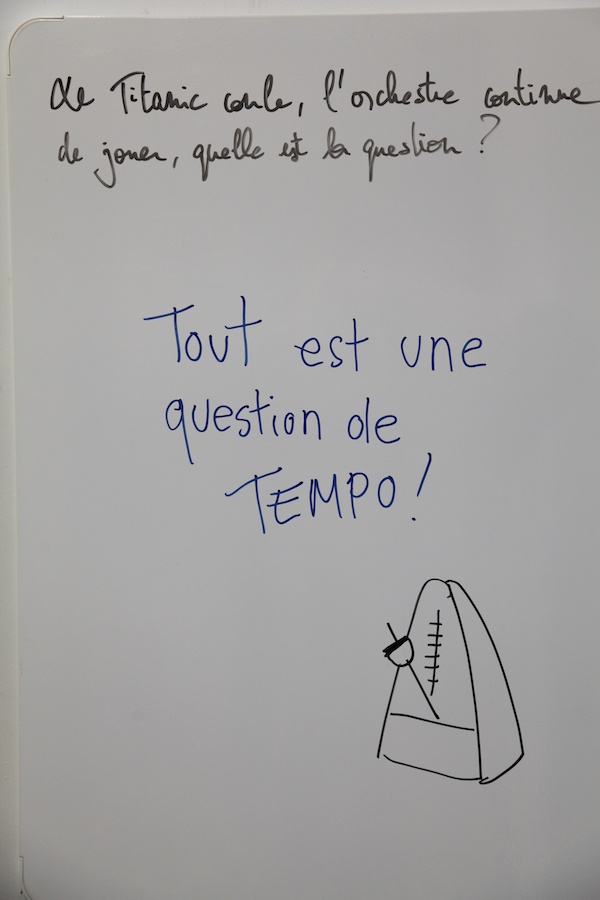 Le Titanic coule, l'orchestre continue
de jouer, quelle est la question ?
Tout est une
question de
TEMPO !